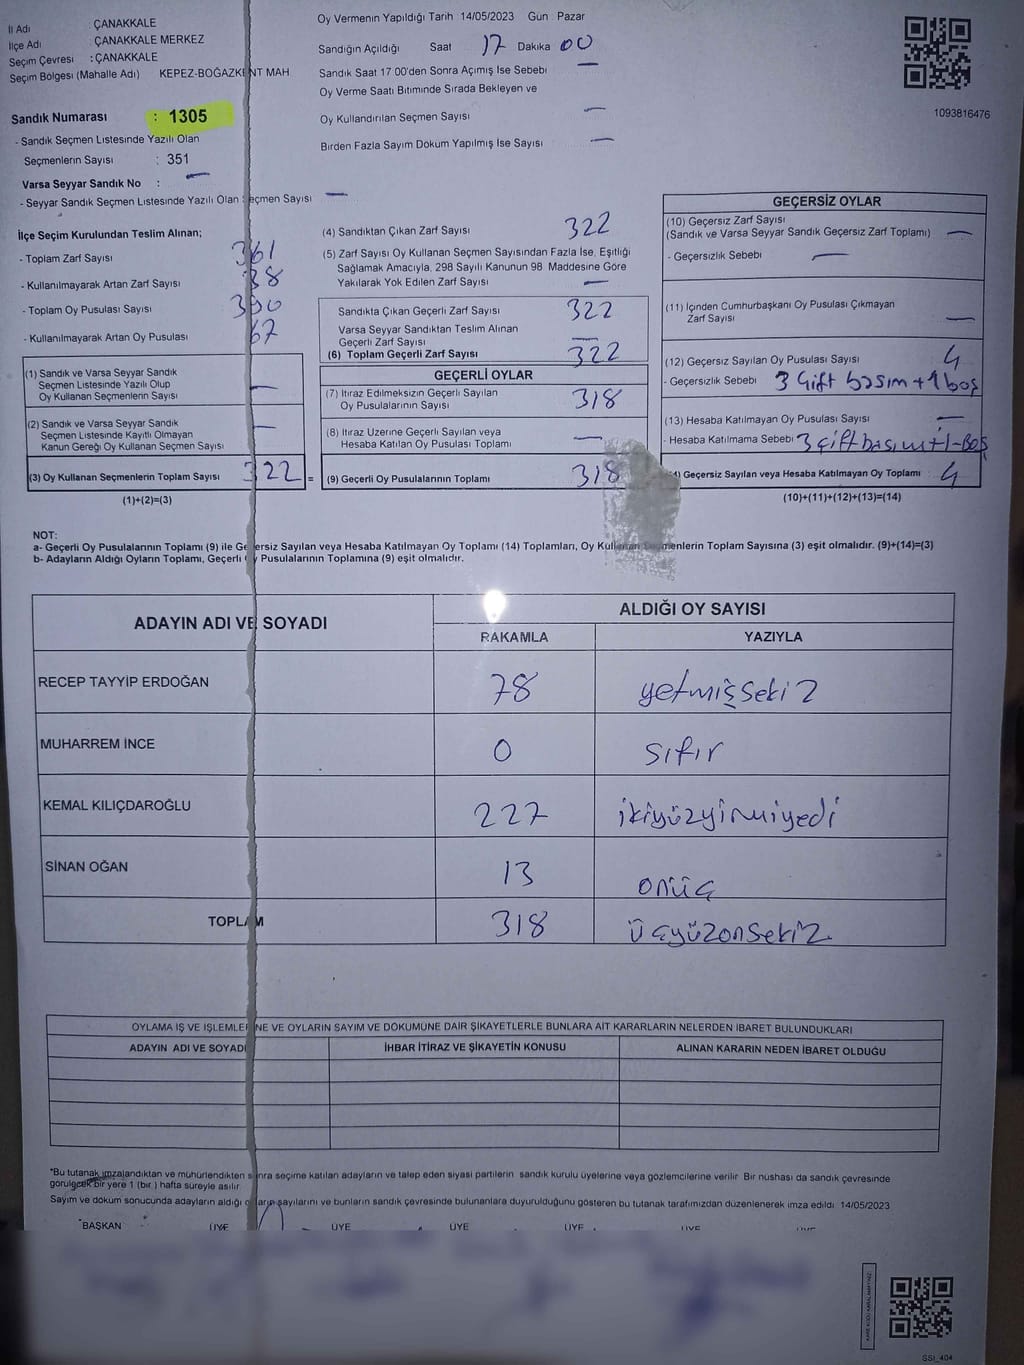 İl Adı : ÇANAKKALE
İlçe Adı : ÇANAKKALE MERKEZ
Seçim Çevresi : ÇANAKKALE
Seçim Bölgesi (Mahalle Adı) KEPEZ-BOĞAZKENT MAH
Sandık Numarası : 1305
- Sandık Seçmen Listesinde Yazılı Olan
Seçmenlerin Sayısı : 351
Varsa Seyyar Sandık No : —
- Seyyar Sandık Seçmen Listesinde Yazılı Olan Seçmen Sayısı —
Oy Vermenin Yapıldığı Tarih 14/05/2023 Gün Pazar
Sandığın Açıldığı Saat 17 Dakika 00
Sandık Saat 17:00'den Sonra Açımış İse Sebebi —
Oy Verme Saati Bitiminde Sırada Bekleyen ve
Oy Kullandırılan Seçmen Sayısı —
Birden Fazla Sayım Döküm Yapılmış İse Sayısı —
1093816476
İlçe Seçim Kurulundan Teslim Alınan;
- Toplam Zarf Sayısı 361
- Kullanılmayarak Artan Zarf Sayısı 38
- Toplam Oy Pusulası Sayısı
- Kullanılmayarak Artan Oy Pusulası 67
(1) Sandık ve Varsa Seyyar Sandık
Seçmen Listesinde Yazılı Olup
Oy Kullanan Seçmenlerin Sayısı —
(2) Sandık ve Varsa Seyyar Sandık
Seçmen Listesinde Kayıtlı Olmayan
Kanun Gereği Oy Kullanan Seçmen Sayısı —
(3) Oy Kullanan Seçmenlerin Toplam Sayısı 322 =
(1)+(2)=(3)
(4) Sandıktan Çıkan Zarf Sayısı 322
(5) Zarf Sayısı Oy Kullanan Seçmen Sayısından Fazla İse, Eşitliği
Sağlamak Amacıyla, 298 Sayılı Kanunun 98 Maddesine Göre
Yakılarak Yok Edilen Zarf Sayısı —
Sandıkta Çıkan Geçerli Zarf Sayısı 322
Varsa Seyyar Sandıktan Teslim Alınan
Geçerli Zarf Sayısı —
(6) Toplam Geçerli Zarf Sayısı 322
GEÇERLİ OYLAR
(7) İtiraz Edilmeksizin Geçerli Sayılan
Oy Pusulalarının Sayısı 318
(8) İtiraz Üzerine Geçerli Sayılan veya
Hesaba Katılan Oy Pusulası Toplamı —
(9) Geçerli Oy Pusulalarının Toplamı 318
GEÇERSİZ OYLAR
(10) Geçersiz Zarf Sayısı
(Sandık ve Varsa Seyyar Sandık Geçersiz Zarf Toplamı) —
- Geçersizlik Sebebi —
(11) İçinden Cumhurbaşkanı Oy Pusulası Çıkmayan
Zarf Sayısı —
(12) Geçersiz Sayılan Oy Pusulası Sayısı 4
- Geçersizlik Sebebi 3 çift basım +1 boş
(13) Hesaba Katılmayan Oy Pusulası Sayısı —
- Hesaba Katılmama Sebebi 3 çift basım+1-Boş
Geçersiz Sayılan veya Hesaba Katılmayan Oy Toplamı 4
(10)+(11)+(12)+(13)=(14)
NOT:
a- Geçerli Oy Pusulalarının Toplamı (9) ile Geçersiz Sayılan veya Hesaba Katılmayan Oy Toplamı (14) Toplamları, Oy Kullanan Seçmenlerin Toplam Sayısına (3) eşit olmalıdır. (9)+(14)=(3)
b- Adayların Aldığı Oyların Toplamı, Geçerli Oy Pusulalarının Toplamına (9) eşit olmalıdır.
ADAYIN ADI VE SOYADI ALDIĞI OY SAYISI
RAKAMLA YAZIYLA
RECEP TAYYİP ERDOĞAN 78 yetmişsekiz
MUHARREM İNCE 0 sıfır
KEMAL KILIÇDAROĞLU 227 ikiyüzyirmiyedi
SİNAN OĞAN 13 onüç
TOPLAM 318 üçyüzonsekiz
OYLAMA İŞ VE İŞLEMLERİNE VE OYLARIN SAYIM VE DÖKÜMÜNE DAİR ŞİKAYETLERLE BUNLARA AİT KARARLARIN NELERDEN İBARET BULUNDUKLARI
ADAYIN ADI VE SOYADI İHBAR İTİRAZ VE ŞİKAYETİN KONUSU ALINAN KARARIN NEDEN İBARET OLDUĞU
*Bu tutanak imzalandıktan ve mühürlendikten sonra seçime katılan adayların ve talep eden siyasi partilerin sandık kurulu üyelerine veya gözlemcilerine verilir. Bir nüshası da sandık çevresinde
görülecek bir yere 1 (bir ) hafta süreyle asılır
Sayım ve döküm sonucunda adayların aldığı oyların sayılarını ve bunların sandık çevresinde bulunanlara duyurulduğunu gösteren bu tutanak tarafımızdan düzenlenerek imza edildi 14/05/2023
BAŞKAN ÜYE ÜYE ÜYE ÜYE ÜYE
SSI_404